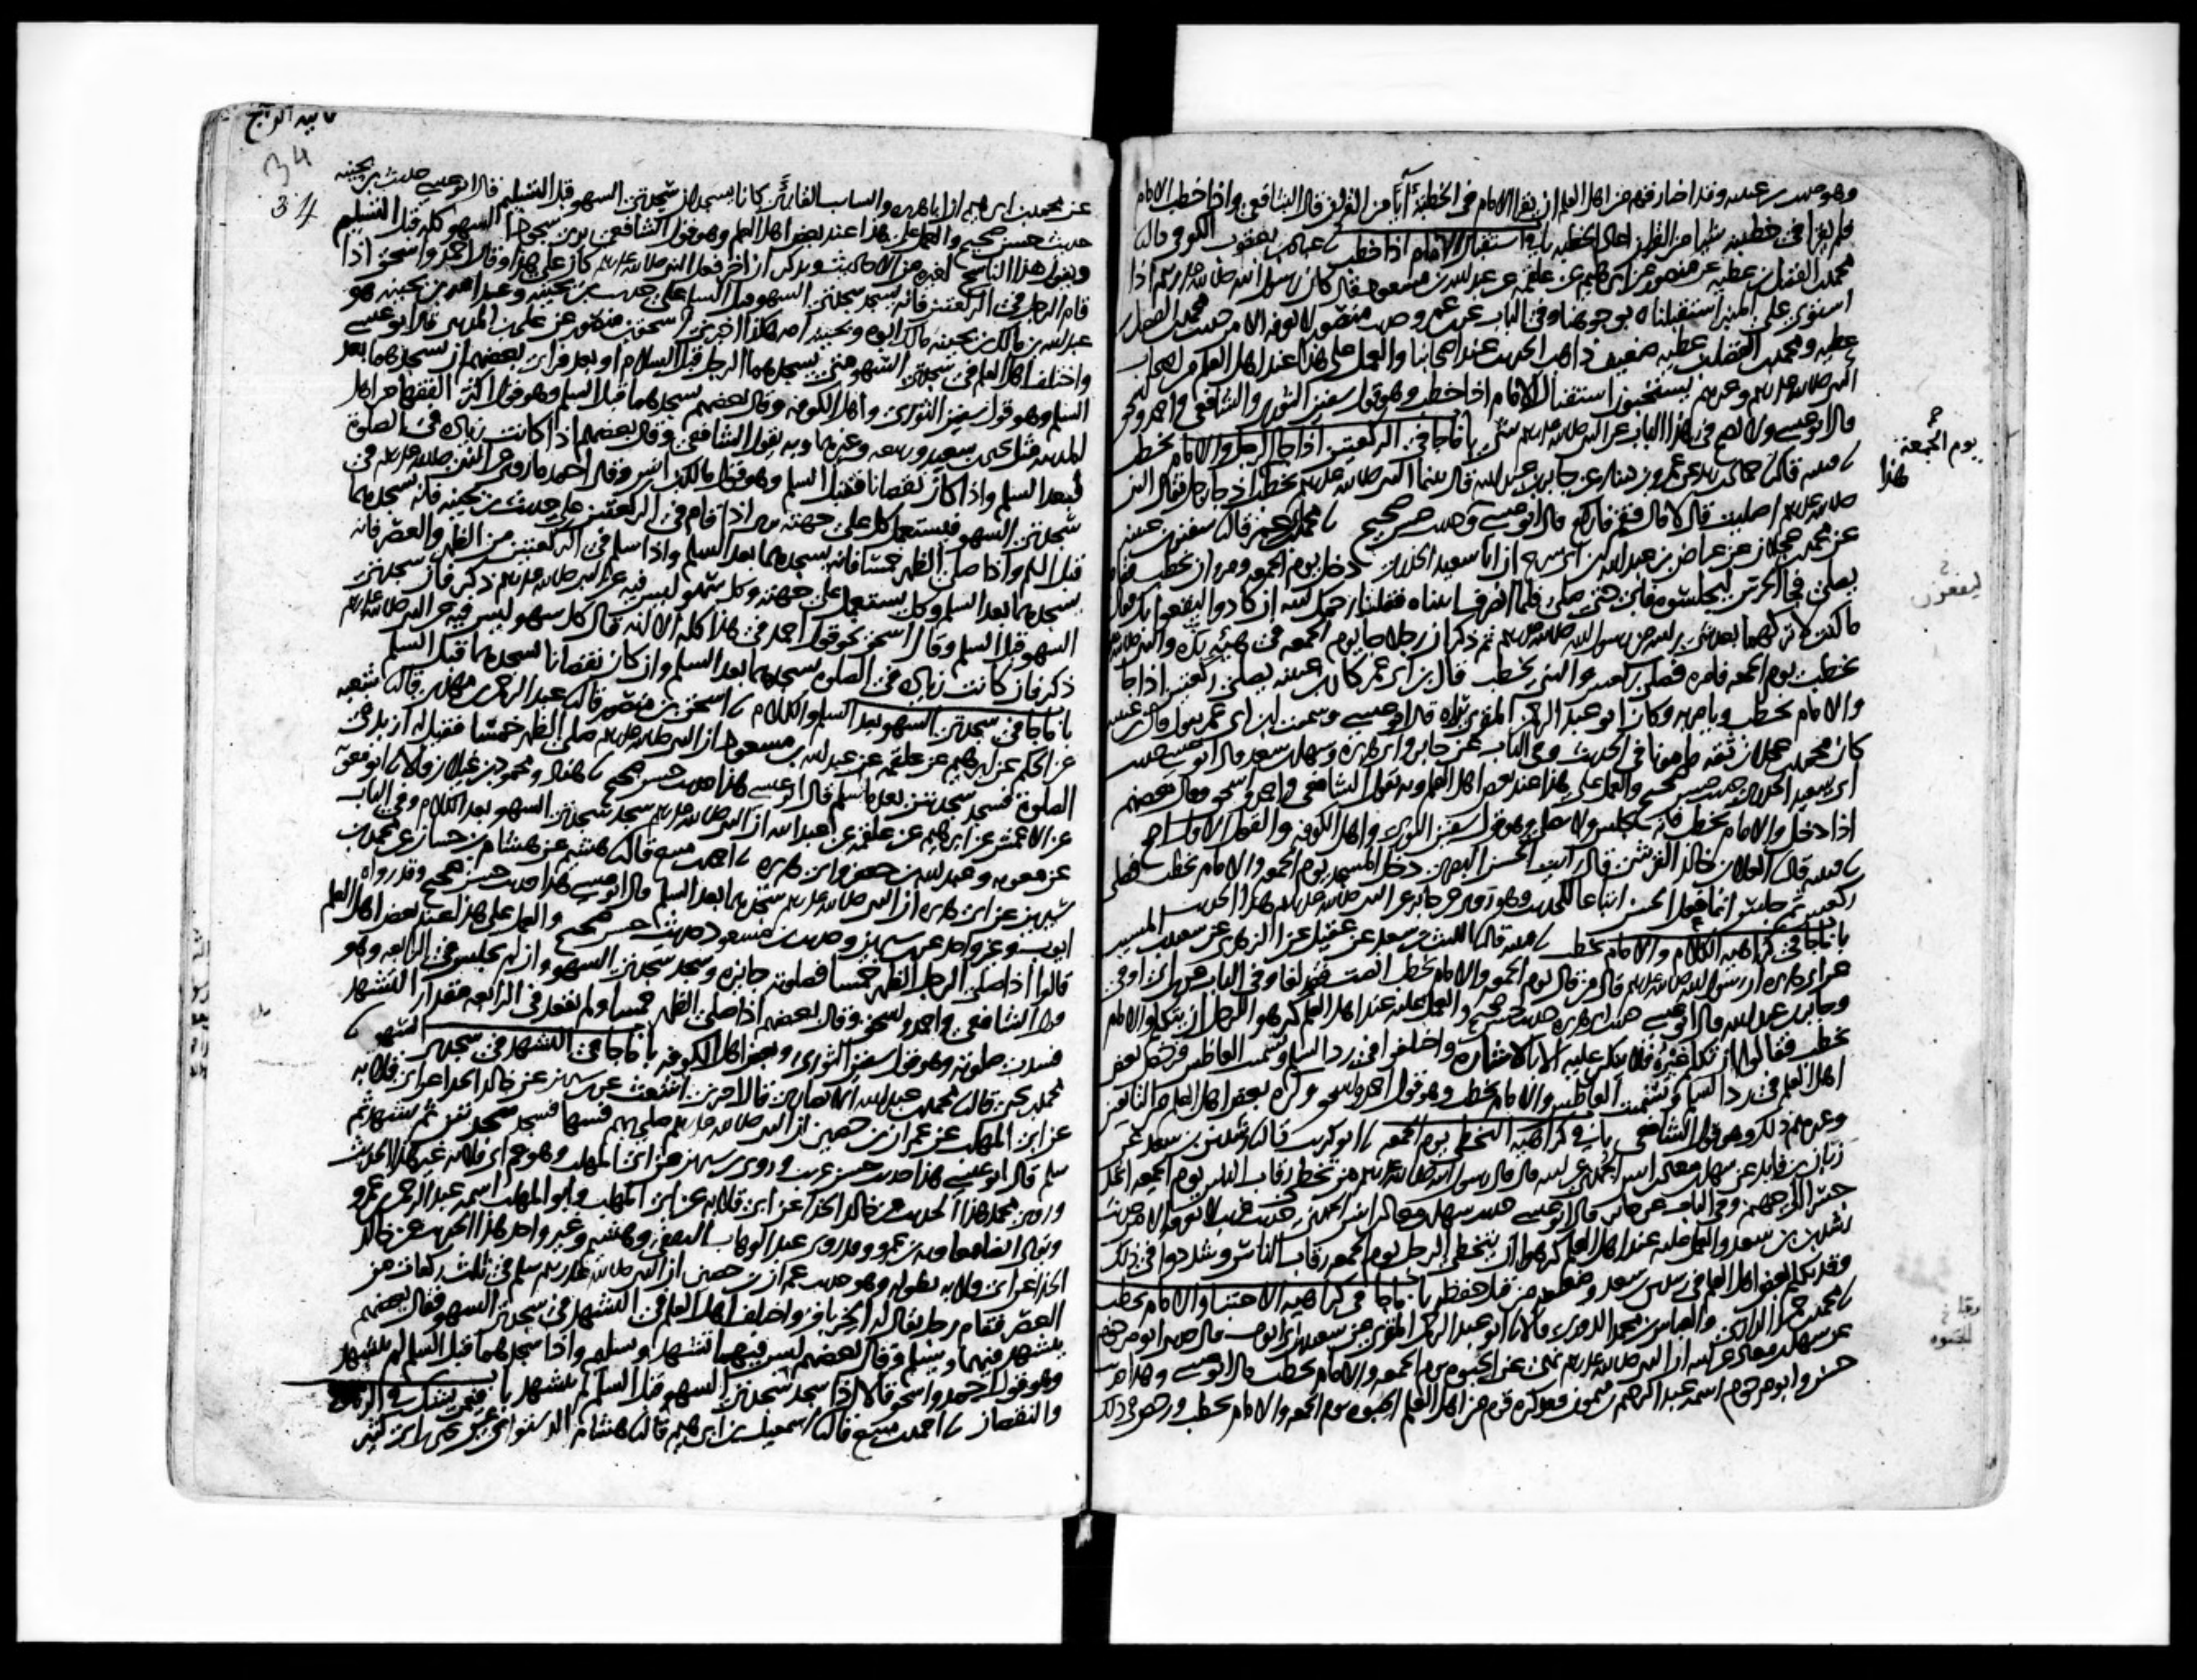 وهو حديث بن عيينه وقد اختار قوم من اهل العلم ان يقرا الامام في الخطبة آيا من القران قال الشافعي واذا خطب الامام
فلم يقرا في خطبته شيا من القران اعاد الخطبه باب في استقبال الامام اذا خطب عباد بن يعقوب الكوفي قال
محمد بن الفضل بن عطيه عن منصور عن ابرهيم عن علقمه عن عبد الله بن مسعود قال كان رسول الله صلى الله عليه وسلم اذا
استوى على المنبر استقبلناه بوجوهنا وفي الباب عن بن عمر وحديث منصور لا نعرفه الا من حديث محمد بن الفضل بن
عطيه ومحمد بن الفضل بن عطيه ضعيف ذاهب الحديث عند اصحابنا والعمل على هذا عند اهل العلم من اصحاب
النبي صلى الله عليه وسلم وغيرهم يستحبون استقبال الامام اذا خطب وهو قول سفين الثوري والشافعي واحمد واسحق
قال ابو عيسى ولا يصح في هذا الباب عن النبي صلى الله عليه وسلم شي باب ما جا في الركعتين اذا جا الرجل والامام يخطب
قتيبه قال حماد بن زيد عن عمرو بن دينار عن جابر بن عبد الله قال بينما النبي صلى الله عليه وسلم يخطب اذ جا رجل فقال النبي
صلى الله عليه وسلم اصليت قال لا قال فقم فاركع قال ابو عيسى حديث حسن صحيح محمد بن ابي عمر قال سفين بن عيينه
عن محمد بن عجلان عن عياض بن عبد الله بن ابي سرح ان ابا سعيد الخدري دخل يوم الجمعه ومروان يخطب فقام
يصلي فجا الحرس ليجلسوه فابى حتى صلى فلما انصرف اتيناه فقلنا رحمك الله ان كادوا ليقعوا بك فقال
ما كنت لاتركهما بعد شي رايته من رسول الله صلى الله عليه وسلم ثم ذكر ان رجلا جا يوم الجمعه في هيئة بذه والنبي صلى الله عليه وسلم
يخطب يوم الجمعه فامره فصلى ركعتين والنبي يخطب قال بن ابي عمر كان بن عيينه يصلي ركعتين اذا جا
والامام يخطب ويامر به وكان ابو عبد الرحمن المقري يراه قال ابو عيسى وسمعت ابن ابي عمر يقول قال بن عيينه
كان محمد بن عجلان ثقه مامونا في الحديث وفي الباب عن جابر وابي هريره وسهل بن سعد قال ابو عيسى حديث
ابي سعيد الخدري حديث حسن صحيح والعمل على هذا عند بعض اهل العلم وبه يقول الشافعي واحمد واسحق وقال بعضهم
اذا دخل والامام يخطب فانه يجلس ولا يصلي وهو قول سفين الثوري واهل الكوفه والقول الاول اصح
قتيبه قال العلا بن خالد القرشي قال رايت الحسن البصري دخل المسجد يوم الجمعه والامام يخطب فصلى
ركعتين ثم جلس انما فعل الحسن اتباعا للحديث وهو روى عن جابر عن النبي صلى الله عليه وسلم هذا الحديث
باب ما جا في كراهيه الكلام والامام يخطب قتيبه قال الليث بن سعد عن عقيل عن الزهري عن سعيد بن المسيب
عن ابي هريره ان رسول الله صلى الله عليه وسلم قال من قال يوم الجمعه والامام يخطب انصت فقد لغا وفي الباب عن بن ابي اوفى
وجابر بن عبد الله قال ابو عيسى حديث ابي هريره حديث حسن صحيح والعمل عليه عند اهل العلم كرهوا للرجل ان يتكلم والامام
يخطب فقالوا ان تكلم غيره فلا ينكر عليه الا بالاشاره واختلفوا في رد السلام وتشميت العاطس فرخص بعض
اهل العلم في رد السلام وتشميت العاطس والامام يخطب وهو قول احمد واسحق وكره بعض اهل العلم من التابعين
وغيرهم ذلك وهو قول الشافعي باب في كراهيه التخطي يوم الجمعه ابو كريب قال رشدين بن سعد عن
زبان بن فايد عن سهل بن معاذ بن انس الجهني عن ابيه قال قال رسول الله صلى الله عليه وسلم من تخطى رقاب الناس يوم الجمعه اتخذ
جسرا الى جهنم وفي الباب عن جابر قال ابو عيسى حديث سهل بن معاذ بن انس الجهني حديث غريب لا نعرفه الا من حديث
رشدين بن سعد والعمل عليه عند اهل العلم كرهوا ان يتخطى الرجل يوم الجمعه رقاب الناس وشددوا في ذلك
وقد تكلم بعض اهل العلم في رشدين بن سعد وضعفه من قبل حفظه باب ما جا في كراهيه الاحتبا والامام يخطب
محمد بن حميد الرازي والعباس بن محمد الدوري قالا ابو عبد الرحمن المقري عن سعيد بن ابي ايوب قال حدثني ابو مرحوم
عن سهل بن معاذ عن ابيه ان النبي صلى الله عليه وسلم نهى عن الحبوه يوم الجمعه والامام يخطب قال ابو عيسى وهذا حديث
حسن وابو مرحوم اسمه عبد الرحيم بن ميمون وقد كره قوم من اهل العلم الحبوه يوم الجمعه والامام يخطب ورخص في ذلك
يوم الجمعة
هذا
ليقعون
34
34
عن محمد بن ابرهيم ان ابا هريره والسايب القارئ كانا يسجدان سجدتي السهو قبل التسليم قال ابو عيسى حديث بن بحينه
حديث حسن صحيح والعمل على هذا عند بعض اهل العلم وهو قول الشافعي يرى سجود السهو كله قبل التسليم
ويقول هذا الناسخ لغيره من الاحاديث ويذكر ان اخر فعل النبي صلى الله عليه وسلم كان على هذا وقال احمد واسحق اذا
قام الرجل في الركعتين فانه يسجد سجدتي السهو قبل السلام على حديث بن بحينه وعبد الله بن بحينه هو
عبد الله بن مالك بن بحينه مالك ابوه وبحينه امه هكذا اخبرني اسحق بن منصور عن علي بن المديني قال ابو عيسى
واختلف اهل العلم في سجدتي السهو متى يسجدهما الرجل قبل السلام او بعد فراى بعضهم ان يسجدهما بعد
السلم وهو قول سفين الثوري واهل الكوفه وقال بعضهم يسجدهما قبل السلم وهو قول اكثر الفقها من اهل
المدينه مثل يحيى بن سعيد وربيعه وغيرهما وبه يقول الشافعي وقال بعضهم اذا كانت زياده في الصلوة
فبعد السلم واذا كان نقصانا فقبل السلم وهو قول مالك بن انس وقال احمد ما روي عن النبي صلى الله عليه وسلم في
سجدتي السهو فيستعمل كل على جهته يرى اذا قام في الركعتين على حديث بن بحينه فانه يسجدهما
قبل السلم واذا صلى الظهر خمسا فانه يسجدهما بعد السلم واذا سلم في الركعتين من الظهر والعصر فانه
يسجدهما بعد السلم وكل يستعمل على جهته وكل سهو ليس فيه عن النبي صلى الله عليه وسلم ذكر فان سجدتي
السهو قبل السلم وقال اسحق نحو قول احمد في هذا كله الا انه قال كل سهو ليس فيه عن النبي صلى الله عليه وسلم
ذكر فان كانت زياده في الصلوه يسجدهما بعد السلم وان كان نقصانا يسجدهما قبل السلم
باب ما جا في سجدتي السهو بعد السلم والكلام اسحق بن منصور قال عبد الرحمن بن مهدي قال شعبه
عن الحكم عن ابرهيم عن علقمه عن عبد الله بن مسعود ان النبي صلى الله عليه وسلم صلى الظهر خمسا فقيل له ازيد في
الصلوة فسجد سجدتين بعد ما سلم قال ابو عيسى هذا حديث حسن صحيح هناد ومحمود بن غيلان قالا ابو معوية
عن الاعمش عن ابرهيم عن علقمه عن عبد الله ان النبي صلى الله عليه وسلم سجد سجدتي السهو بعد الكلام وفي الباب
عن معويه وعبد الله بن جعفر وابي هريره احمد بن منيع قال هشيم عن هشام بن حسان عن محمد بن
سيرين عن ابي هريره ان النبي صلى الله عليه وسلم سجدهما بعد السلم قال ابو عيسى هذا حديث حسن صحيح وقد رواه
ايوب وغير واحد عن بن سيرين وحديث بن مسعود حديث حسن صحيح والعمل على هذا عند بعض اهل العلم
قالوا اذا صلى الرجل الظهر خمسا فصلوته جايزه وسجد سجدتي السهو وان لم يجلس في الرابعه وهو
قول الشافعي واحمد واسحق وقال بعضهم اذا صلى الظهر خمسا ولم يقعد في الرابعه مقدار التشهد
فسدت صلوته وهو قول سفين الثوري وبعض اهل الكوفه باب ما جا في التشهد في سجدتي السهو
محمد بن يحيى قال محمد بن عبد الله الانصاري قال اخبرني اشعث عن بن سيرين عن خالد الحذا عن ابي قلابه
عن ابي المهلب عن عمران بن حصين ان النبي صلى الله عليه وسلم صلى بهم فسها فسجد سجدتين ثم تشهد ثم
سلم قال ابو عيسى هذا حديث حسن غريب وروى بن سيرين عن ابي المهلب وهو عم ابي قلابه غير هذا الحديث
وروى محمد هذا الحديث عن خالد الحذا عن ابي قلابه عن ابي المهلب وابو المهلب اسمه عبد الرحمن بن عمرو
ويقال ايضا معاويه بن عمرو وقد روى عبد الوهاب الثقفي وهشيم وغير واحد هذا الحديث عن خالد
الحذا عن ابي قلابه بطوله وهو حديث عمران بن حصين ان النبي صلى الله عليه وسلم سلم في ثلث ركعات من
العصر فقام رجل يقال له الخرباق واختلف اهل العلم في التشهد في سجدتي السهو فقال بعضهم
يتشهد فيهما ويسلم وقال بعضهم ليس فيهما تشهد وسلم واذا سجدهما قبل السلم لم يتشهد
وهو قول احمد واسحق قالا اذا سجد سجدتي السهو قبل السلم لم يتشهد باب فيمن يشك في الزياده
والنقصان احمد بن منيع قال اسمعيل بن ابرهيم قال هشام الدستوائي عن يحيى بن ابي كثير